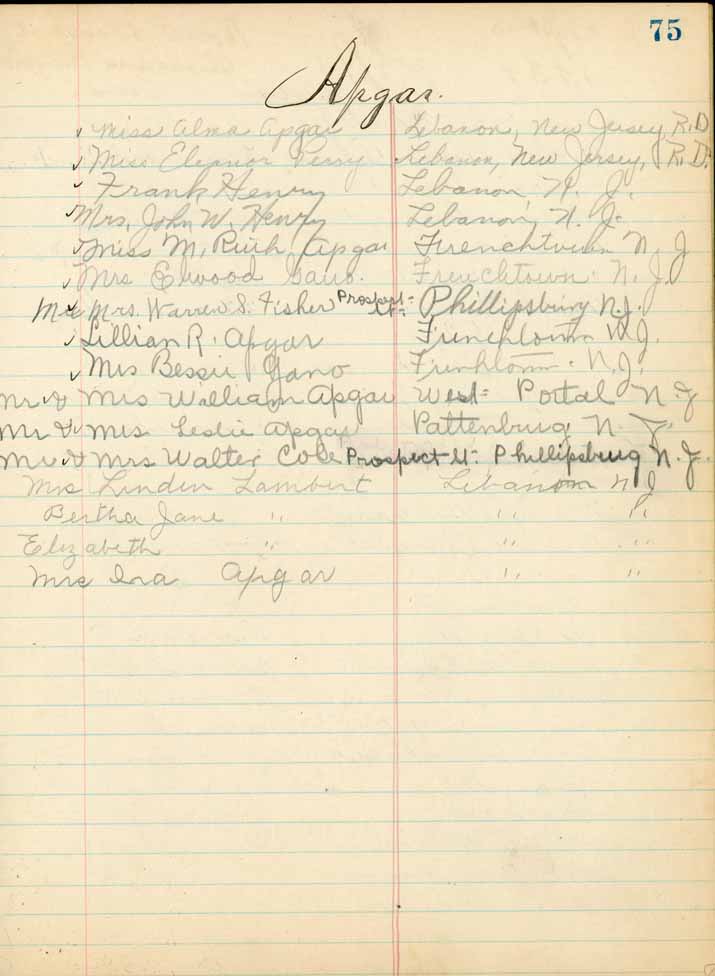 75
Apgar.
✓ Miss Alma Apgar Lebanon, New Jersey R.D.
✓ Miss Eleanor Perry Lebanon, New Jersey, R.D.
✓ Frank Henry Lebanon, N. J.
✓ Mrs. John W. Henry Lebanon, N. J.
✓ Miss M. Ruth Apgar Frenchtown N. J
✓ Mrs Elwood Frenchtown. N. J.
Mrs. Warren S. Fisher Prospect St. Phillipsburg N.J.
✓ Lillian R. Apgar Frenchtown N.J.
✓ Mrs Bessie Gano Frenchtown. N.J.
Mr. & Mrs William Apgar West Portal N. J
Mr & Mrs Leslie Apgar Pattenburg N. J.
Mr & Mrs Walter Cole Prospect St. Phillipsburg N.J.
Mrs Linden Lambert Lebanon N J
Bertha Jane " " "
Elizabeth " " "
Mrs Ira Apgar " "